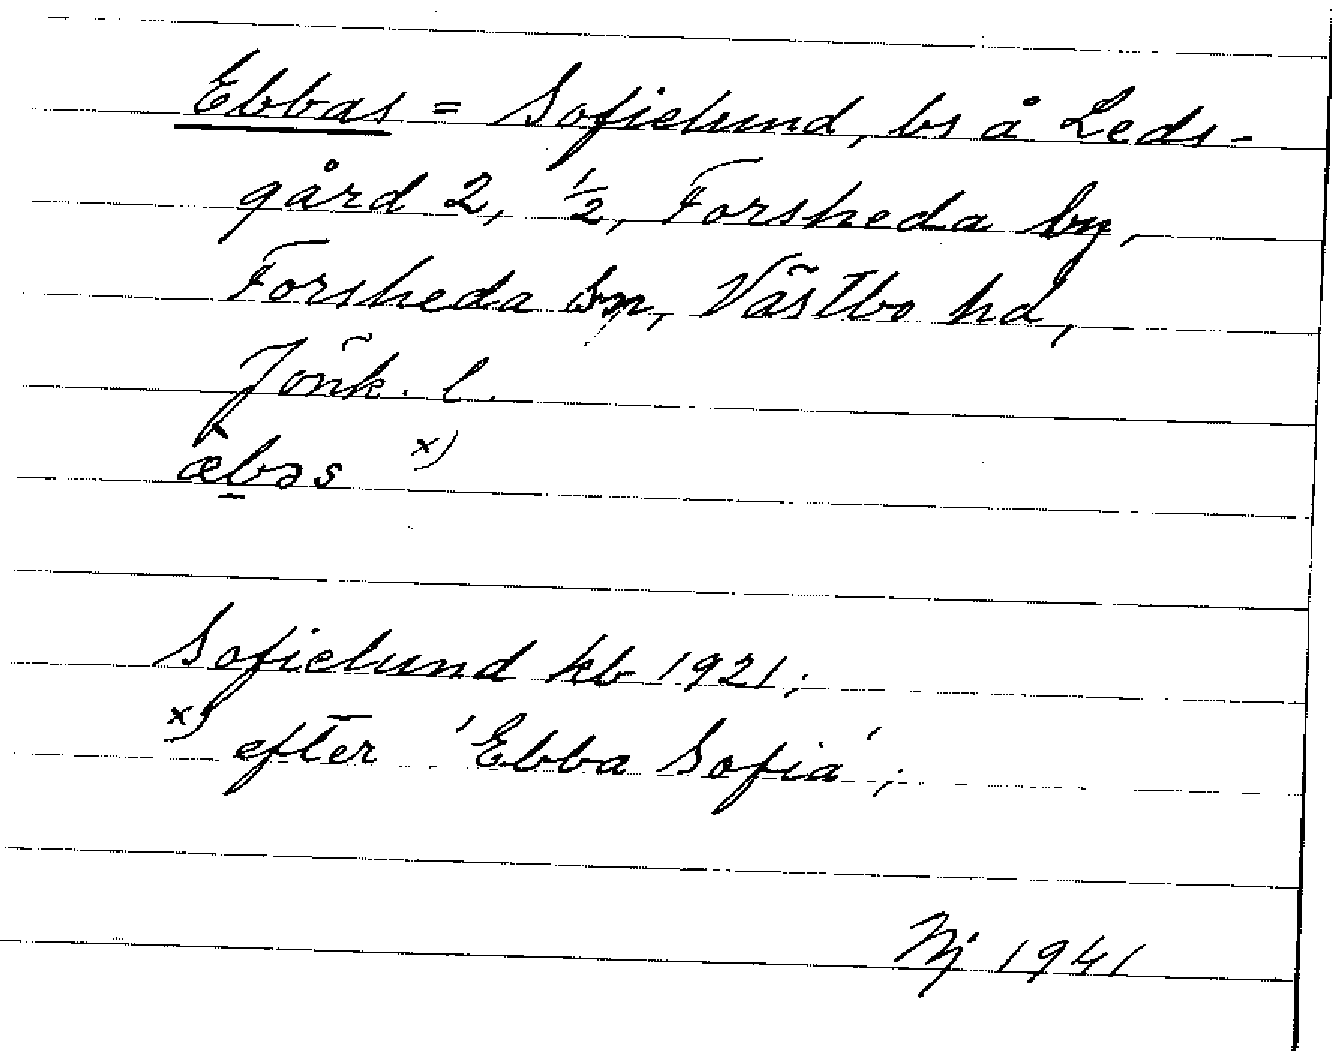 Ebbas = Sofielund, bs å Leds-
gård 2, 1/2, Forsheda by,
Forsheda sn, Västbo hd,
Jönk. l.
æ̀b̠əs x)
Sofielund kb 1921;
x) efter 'Ebba Sofia';
Nj 1941